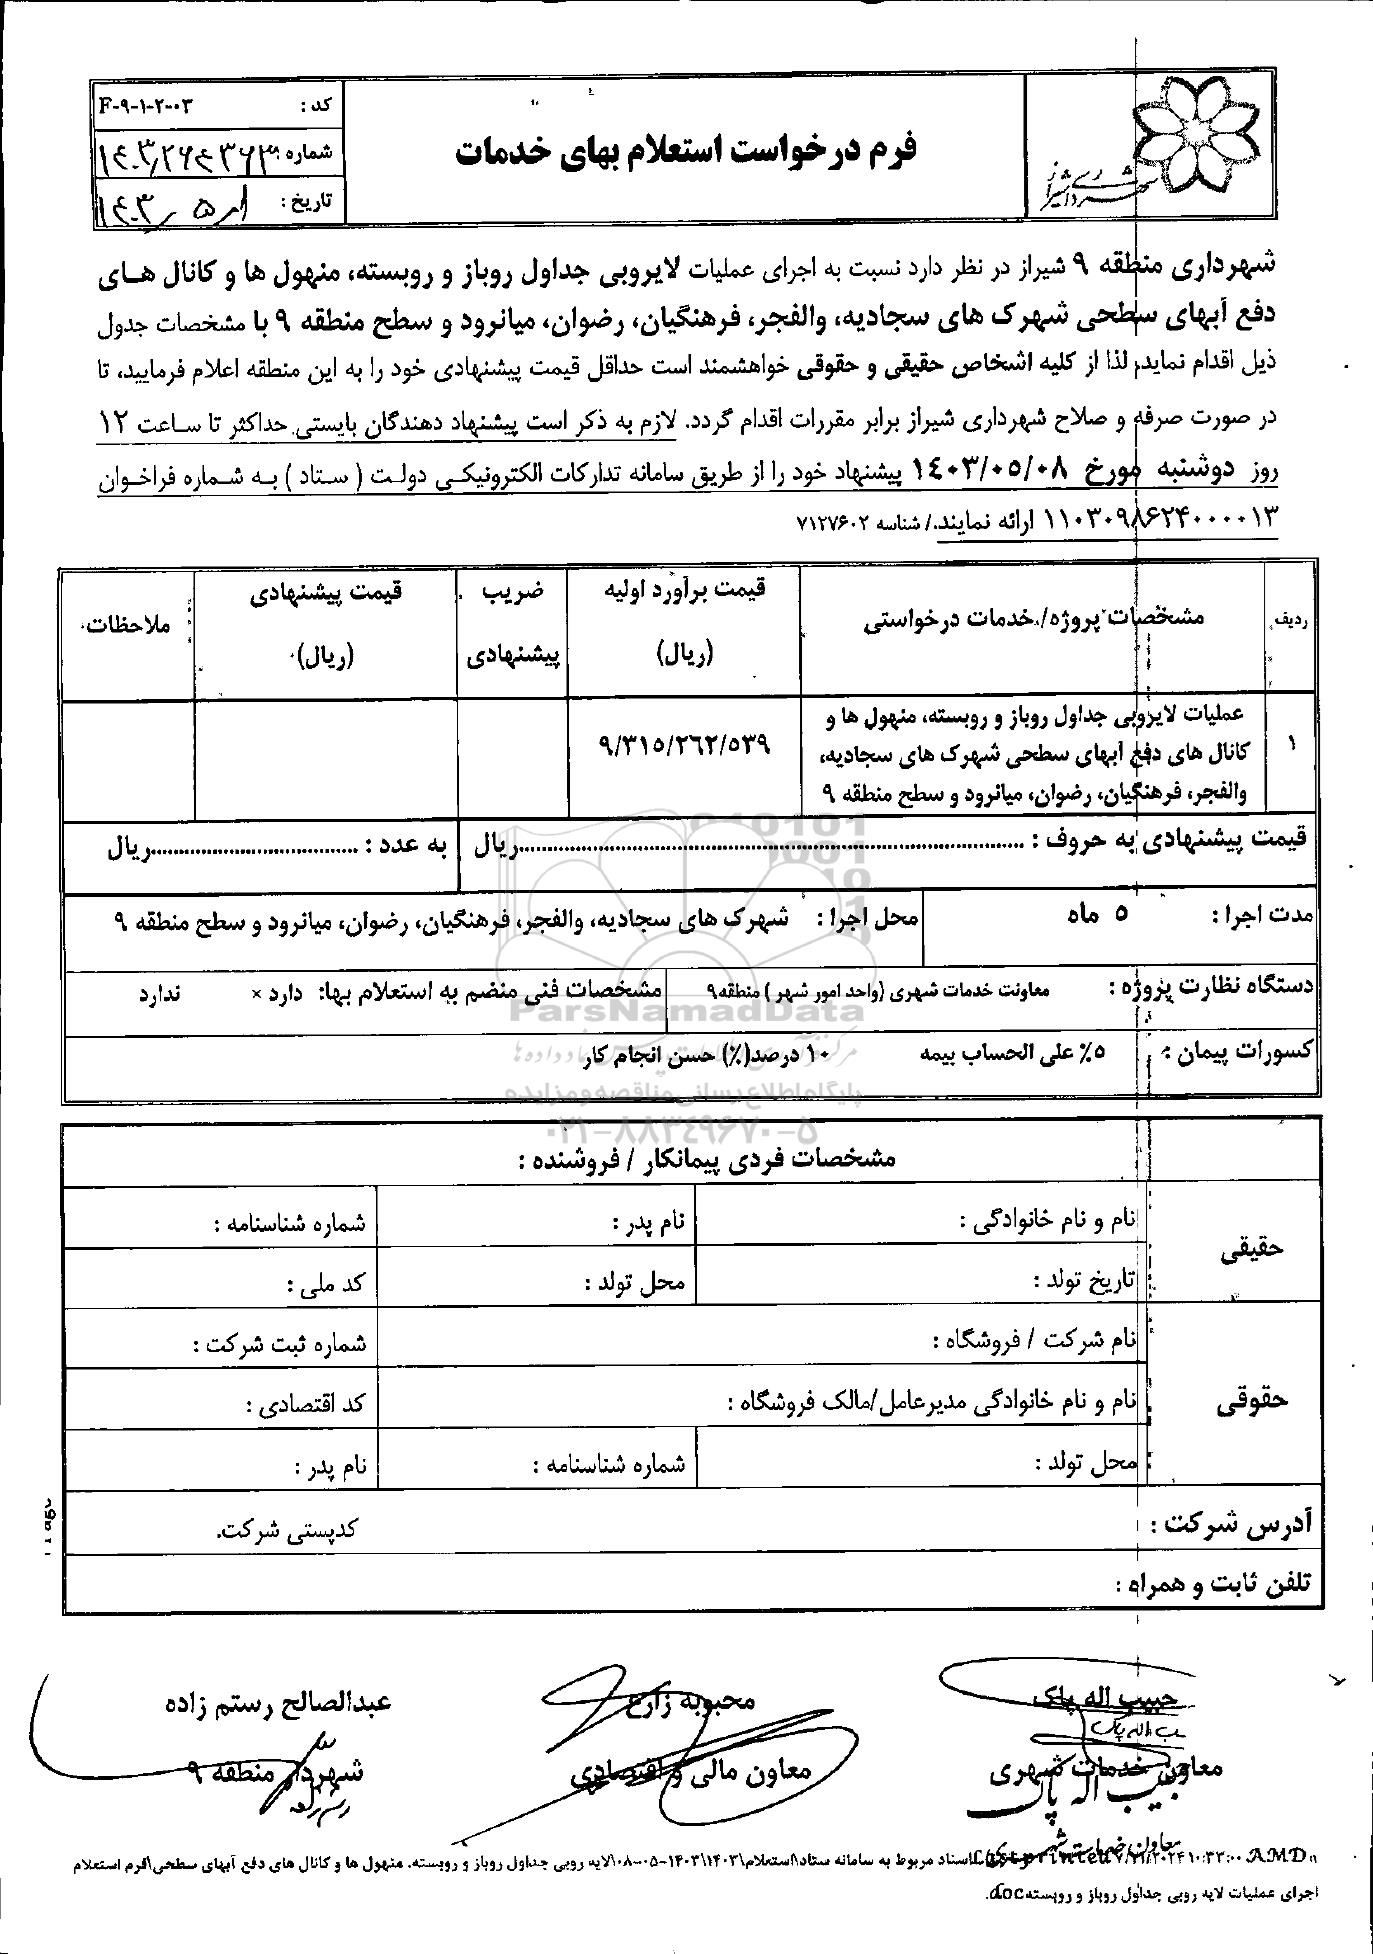 فرم درخواست استعلام بهای خدمات
کد : F-۹-۱-۲-۰۳
شماره
تاریخ : ۱۴۰۳/۵/۱
شهرداری منطقه ۹ شیراز در نظر دارد نسبت به اجرای عملیات لایروبی جداول روباز و روبسته، منهول ها و کانال هـای
دفع آبهای سطحی شهرک های سجادیه، والفجر، فرهنگیان، رضوان، میانرود و سطح منطقه ۹ با مشخصات جدول
ذیل اقدام نماید، لذا از کلیه اشخاص حقیقی و حقوقی خواهشمند است حداقل قیمت پیشنهادی خود را به این منطقه اعلام فرمایید، تا
در صورت صرفه و صلاح شهرداری شیراز برابر مقررات اقدام گردد. لازم به ذکر است پیشنهاد دهندگان بایستی حداکثر تا سـاعت ۱۲
روز دوشنبه مورخ ۱۴۰۳/۰۵/۰۸ پیشنهاد خود را از طریق سامانه تدارکات الکترونیکـی دولـت ( سـتاد ) بـه شـماره فراخـوان
۱۱۰۳۰۹۸۶۲۴۰۰۰۰۱۳ ارائه نمایند./ شناسه ۷۱۲۷۶۰۲
ردیف
مشخصات پروژه/ خدمات درخواستی
قیمت برآورد اولیه
(ریال)
ضریب
پیشنهادی
قیمت پیشنهادی
(ریال)
ملاحظات
۱
عملیات لایروبی جداول روباز و روبسته، منهول ها و
کانال های دفع آبهای سطحی شهرک های سجادیه،
والفجر، فرهنگیان، رضوان، میانرود و سطح منطقه ۹
۹/۳۱۵/۲۶۲/۵۳۹
قیمت پیشنهادی به حروف : ........................................ریال
به عدد : ....................ریال
مدت اجرا : ۵ ماه
محل اجرا : شهرک های سجادیه، والفجر، فرهنگیان، رضوان، میانرود و سطح منطقه ۹
دستگاه نظارت پروژه : معاونت خدمات شهری (واحد امور شهر ) منطقه۹
مشخصات فنی منضم به استعلام بها: دارد × ندارد
کسورات پیمان : ۵٪ علی الحساب بیمه ۱۰ درصد(٪) حسن انجام کار
ParsNamadData
پایگاه اطلاع رسانی مناقصه و مزایده
۰۲۱-۸۸۳۴۹۶۷۰-۵
مشخصات فردی پیمانکار / فروشنده :
حقیقی
نام و نام خانوادگی :
نام پدر :
شماره شناسنامه :
تاریخ تولد :
محل تولد :
کد ملی :
حقوقی
نام شرکت / فروشگاه :
شماره ثبت شرکت :
نام و نام خانوادگی مدیرعامل/مالک فروشگاه :
کد اقتصادی :
محل تولد :
شماره شناسنامه :
نام پدر :
آدرس شرکت :
کدپستی شرکت.
تلفن ثابت و همراه :
حبیب اله پاک
محبوبه زارع
عبدالصالح رستم زاده
معاون خدمات شهری
معاون مالی و اقتصادی
شهردار منطقه ۹
حبیب اله پاک
معاون خدمات شهری
اسناد مربوط به سامانه ستاد\استعلام\۱۴۰۳\۱۴۰۳-۰۵-۰۸\لایه روبی جداول روباز و روبسته، منهول ها و کانال های دفع آبهای سطحی\فرم استعلام
اجرای عملیات لایه روبی جداول روباز و روبسته.doc